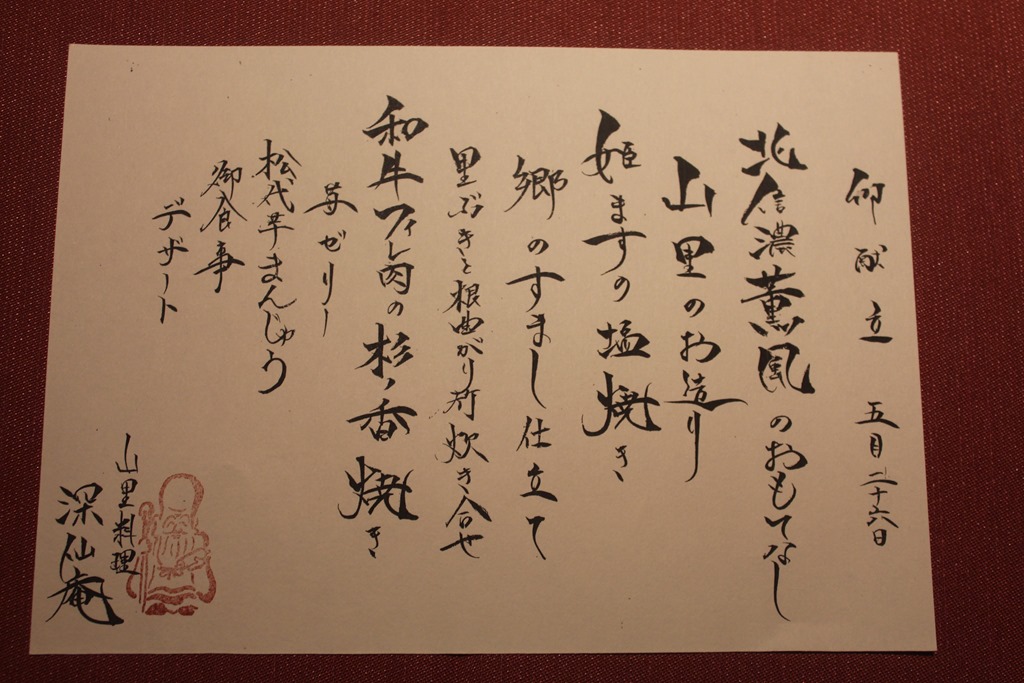 御献立 五月二十六日
北信濃薫風のおもてなし
山里のお造り
姫ますの塩焼き
郷のすまし仕立て
里ぶきと根曲がり筍炊き合せ
和牛フィレ肉の杉ノ香焼き
苺ゼリー
松代芋まんじゅう
御食事
デザート
山里料理
深仙庵